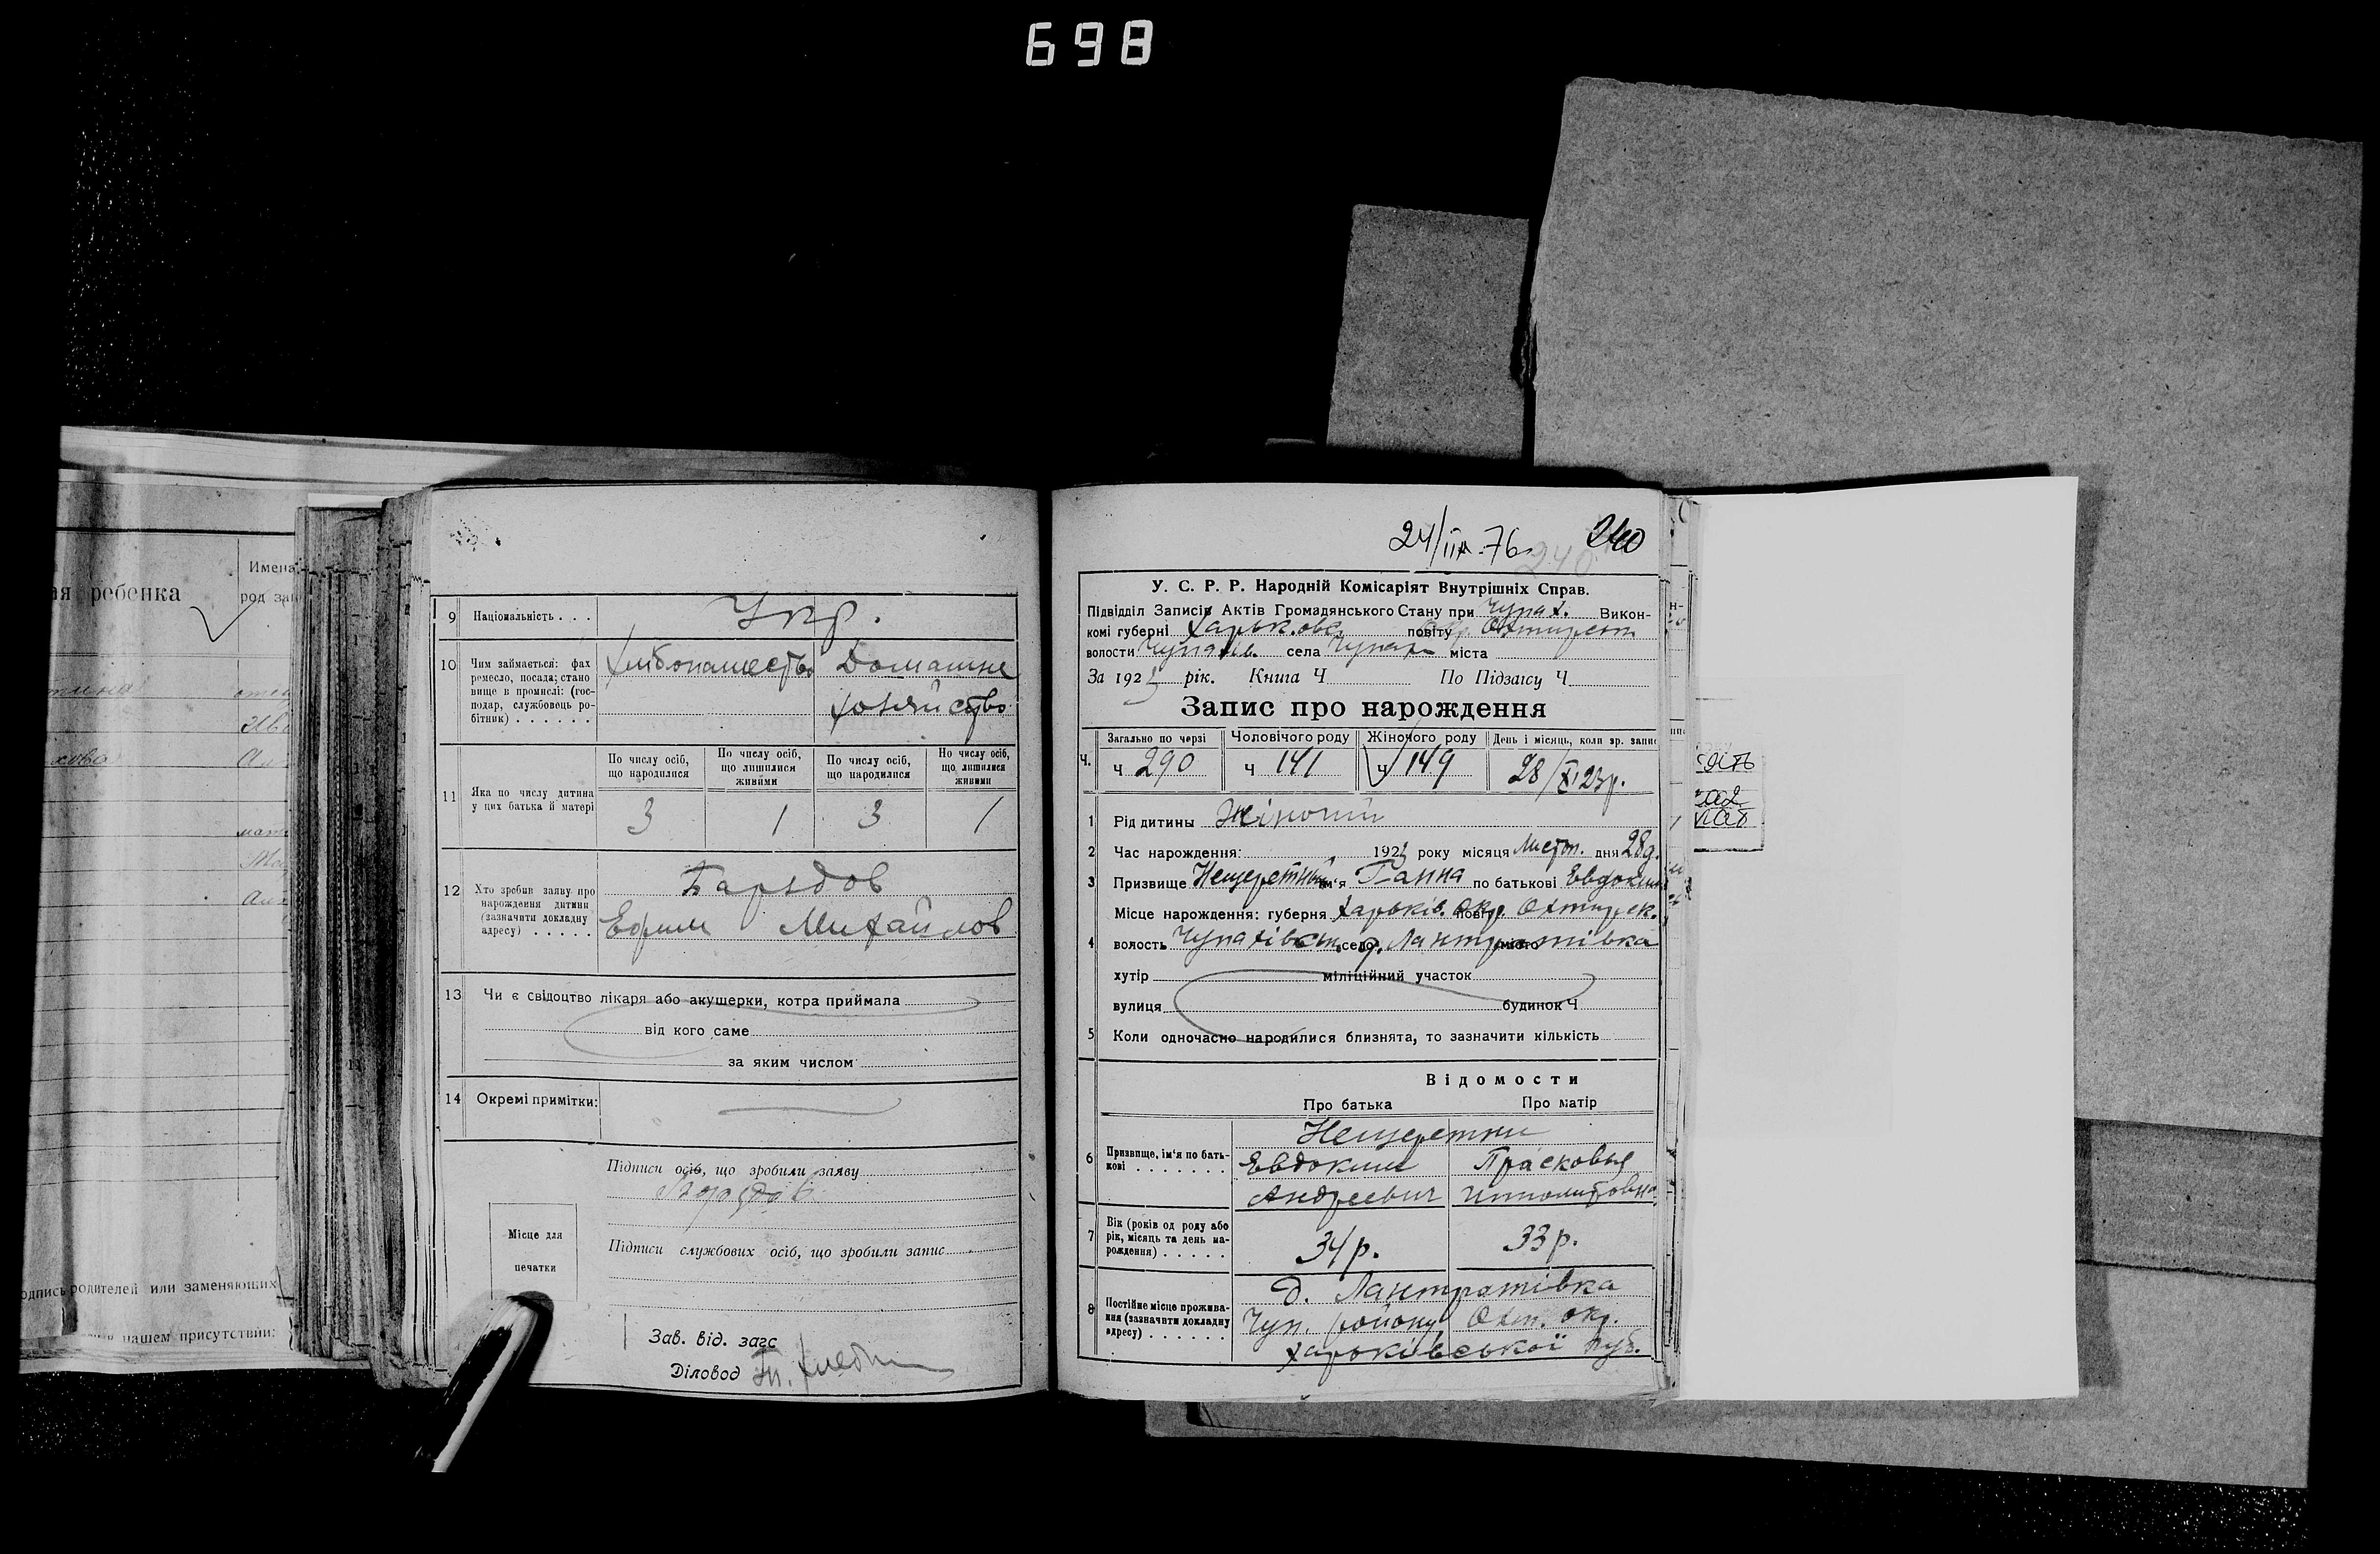 698
ребенка
Имена
род за
одпись родителей или заменяющих
нашем присутствии:
9 Національність . . . Укр.
10 Чим займається: фах ремесло, посада; стано вище в промислі: (гос- подар, службовець ро- бітник) . . . . . .
Хлибопашество Домашне
хозяйство
11 Яка по числу дитина у цих батька й матері
По числу осіб, що народилися
По числу осіб, що лишилися живими
По числу осіб, що народилися
По числу осіб, що лишилися живими
3 1 3 1
12 Хто зробив заяву про нарождення дитини (зазначити докладну адресу) . . . . .
Ефим Михайлов
13 Чи є свідоцтво лікаря або акушерки, котра приймала
від кого саме
за яким числом
14 Окремі примітки:
Підписи осіб, що зробили заяву
Місце для
печатки
Підписи службових осіб, що зробили запис
Зав. від. загс
Діловод
24/III.76 240
240
У. С. Р. Р. Народній Комісаріят Внутрішніх Справ.
Підвідділ Записів Актів Громадянського Стану при Чупах. Викон-
комі губерні Харьковс. повіту Охтирськ
волости Чупахів. села Чупахи міста
За 192 рік. Книга Ч По Підзагсу Ч
Запис про нарождення
Ч.
Загально по черзі
Чоловічого роду
Жіночого роду
День і місяць, коли зр. запис
Ч 290
Ч 141
Ч 149
28/XI 23р.
1 Рід дитини Жіночий
2 Час нарождення: 1923 року місяця Листоп. дня 28д.
3 Призвище Нещеретний ім'я Ганна по батькові Евдоким
Місце нарождення: губерня Харьків. окр. повіт Охтирськ.
4 волость Чупахівськ. село д. Лантратівка місто
хутір міліційний участок
вулиця будинок Ч
5 Коли одночасно народилися близнята, то зазначити кількість
Відомости
Про батька Про матір
6 Призвище, ім'я по бать- кові . . . . . . .
Нещеретни
Евдоким Прасковья
Андреевич Ипполитовна
7 Вік (років од роду або рік, місяць та день на- рождення) . . . . .
34р. 33р.
8 Постійне місце прожива- ння (зазначити докладну адресу) . . . . . .
д. Лантратівка
Чуп. району Охт. окр.
Харьківської губ.